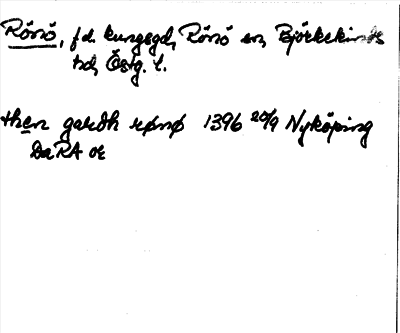 Rönö, f.d. kungsgd, Rönö sn, Björkekinds
hd, Östg. l.
then gardh rønø 1396 20/9 Nyköping
DaRA or